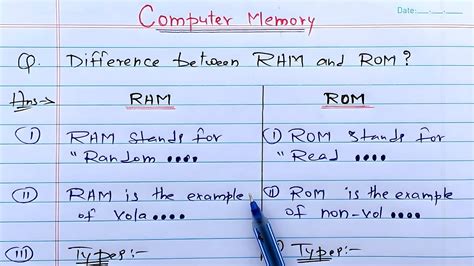 Date:__.__.__
Computer Memory
Q. Difference between RAM and ROM?
Ans→ RAM ROM
(i) RAM stands for (i) ROM stands for
"Random .... "Read ....
(ii) RAM is the example (ii) ROM is the example
of vola.... of non-vol....
(iii) Types:- Types:-